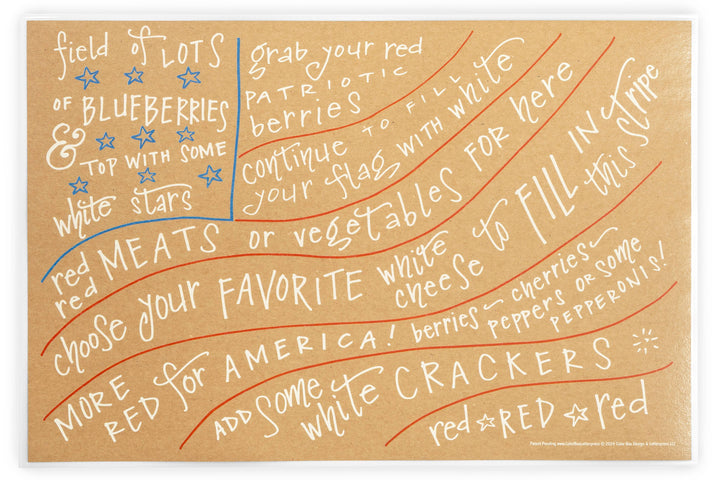 field of LOTS
OF BLUEBERRIES
& TOP WITH SOME
white stars
grab your red
PATRIOTIC
berries
continue TO FILL
your flag WITH white
red MEATS or vegetables FOR here
red
choose your FAVORITE white cheese to FILL IN this stripe
MORE RED for AMERICA! berries cherries peppers OR some PEPPERONIS!
ADD some white CRACKERS
red RED red